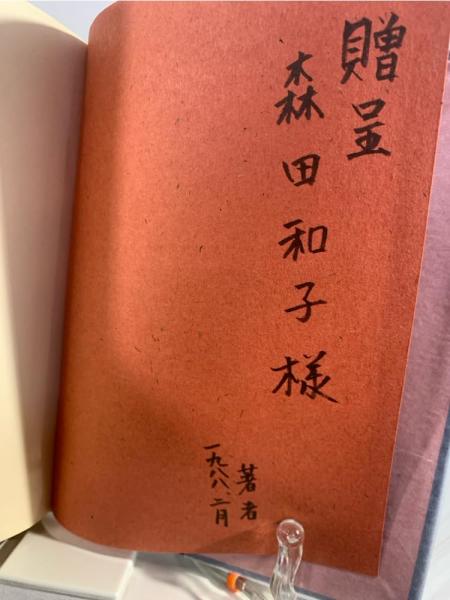 贈呈
森田和子様
著者
一九八八、二月